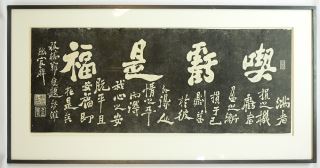 喫虧是福
滿者
損之機
虧者
盈之漸
損于己
則益於彼
外得人
情之平
內得
我心之安
既平且
安福即
在是矣
板橋鄭燮題於濰
縣官齋